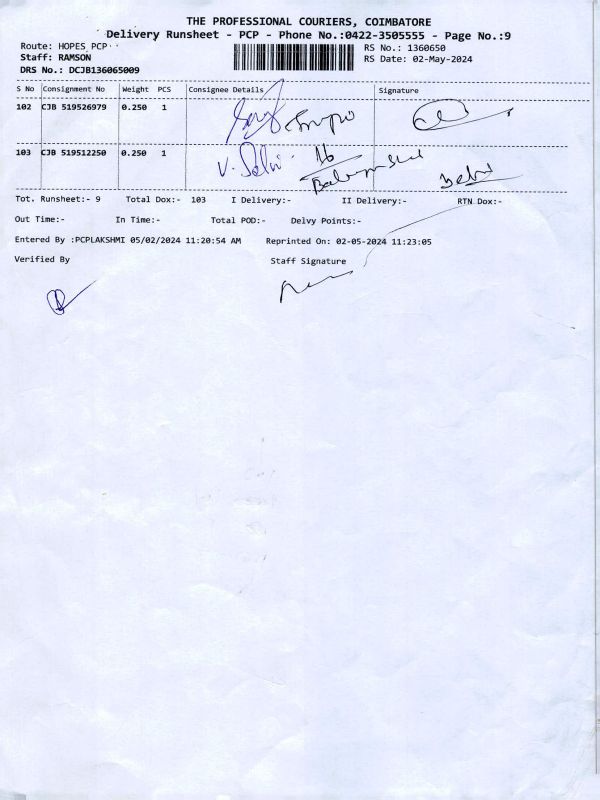 THE PROFESSIONAL COURIERS, COIMBATORE
Delivery Runsheet - PCP - Phone No.:0422-3505555 - Page No.:9
Route: HOPES PCP
RS No.: 1360650
Staff: RAMSON
RS Date: 02-May-2024
DRS No.: DCJB136065009
S No Consignment No Weight PCS Consignee Details Signature
102 CJB 519526979 0.250 1
103 CJB 519512250 0.250 1 V. Selvi 16
Tot. Runsheet:- 9 Total Dox:- 103 I Delivery:- II Delivery:- RTN Dox:-
Out Time:- In Time:- Total POD:- Delvy Points:-
Entered By :PCPLAKSHMI 05/02/2024 11:20:54 AM Reprinted On: 02-05-2024 11:23:05
Verified By Staff Signature